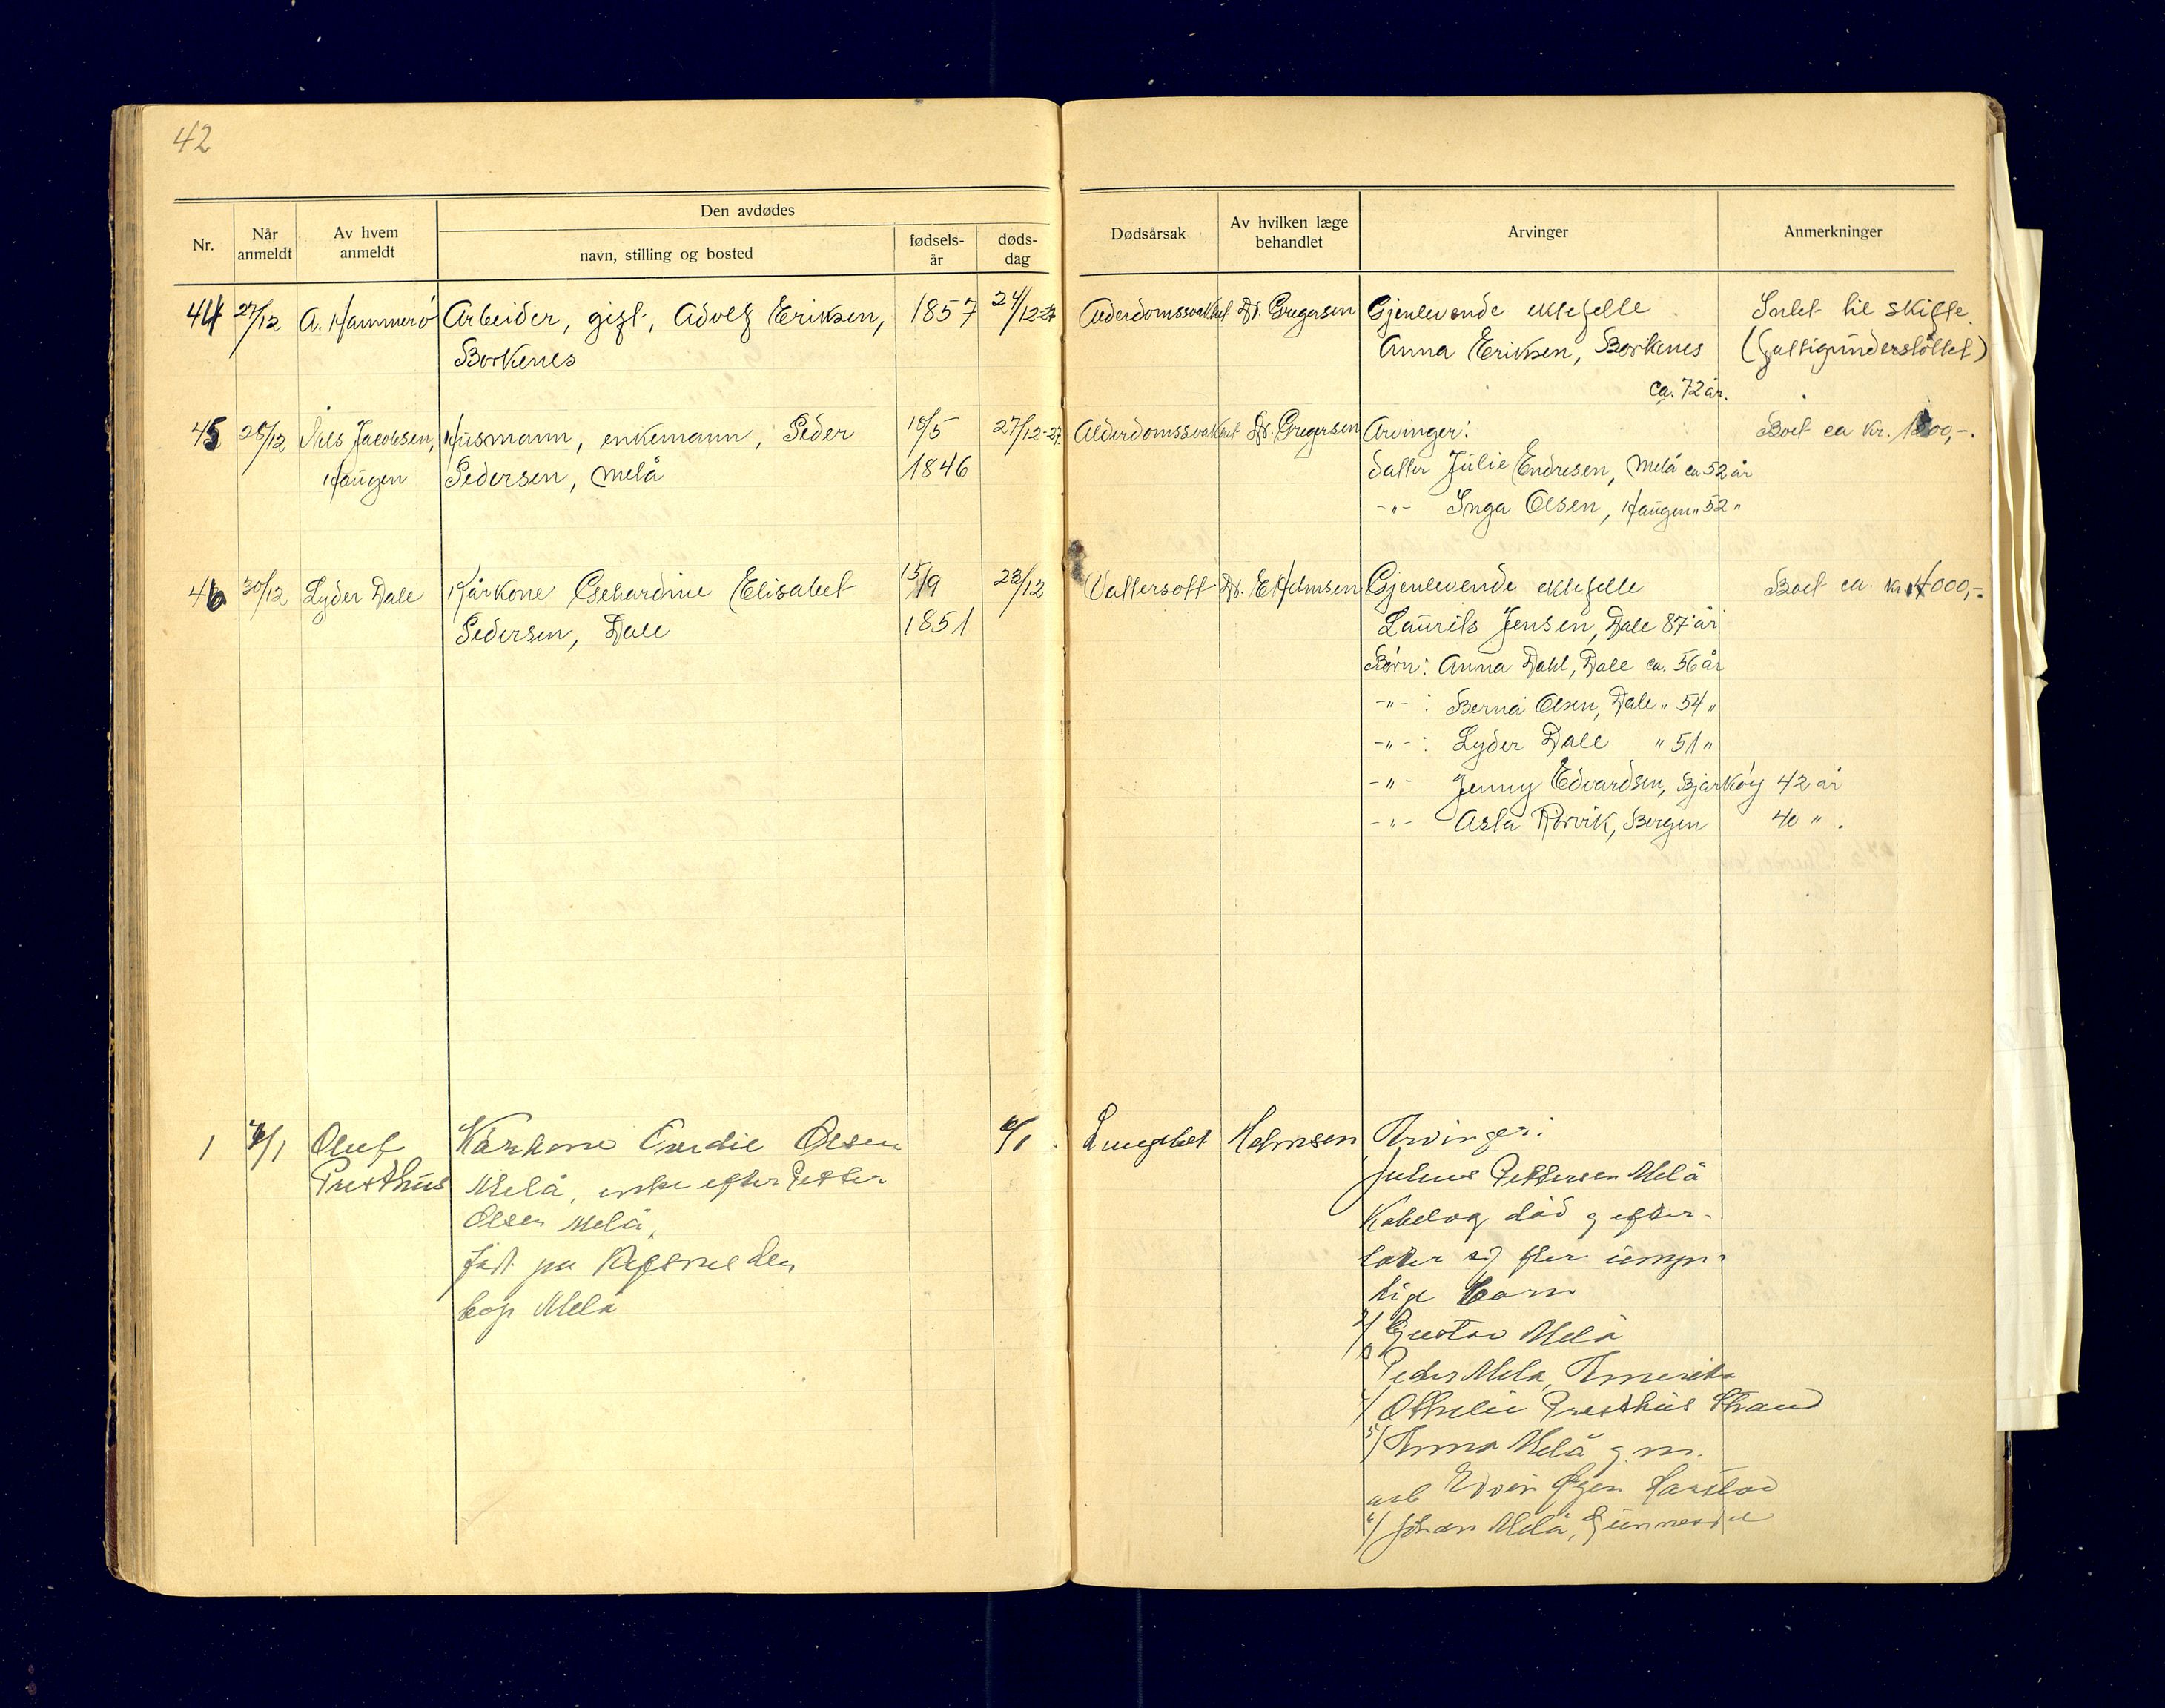 42
Nr.
Når anmeldt
Av hvem anmeldt
Den avdødes
navn, stilling og bosted
fødsels-år
døds-dag
Dødsårsak
Av hvilken læge behandlet
Arvinger
Anmerkninger
44 27/12 A. Hammerö Arbeider, gift, Adolf Eriksen, 1857 24/12-27 Alderdomssvakhet Dr. Gregersen Gjenlevende ektefelle Intet til skifte.
Borkenes Anna Eriksen, Borkenes (fattigunderstöttet)
ca. 72 år.
45 28/12 Nils Jacobsen, Husmann, enkemann, Peder 18/5 27/12-27. Alderdomssvakhet Dr. Gregersen Arvinger: Boet ca kr. 1500,-.
Haugen Pedersen, Melå 1846 datter Julie Endresen, Melå ca 52 år
-"- Inga Olsen, Haugen " 52 "
46 30/12 Lyder Dale Kårkone Gehardine Elisabet 15/9 23/12 Vattersott Dr. E Holmsen Gjenlevende ektefelle Boet ca. kr. 4000,-.
Pedersen, Dale 1851 Laurits Jensen, Dale 87 år
Börn: Anna Dahl, Dale ca. 56 år
-"- : Berna Olsen, Dale " 54 "
-"- : Lyder Dale " 51 "
-"- Jenny Edvardsen, Bjarköy 42 år
-"- Asta Rörvik, Bergen 40 " .
1 /1 Oluf Kårkone Olsen /1 Holmsen Arvinger:
Presthus Melå, enke efter Petter Julius Pettersen Melå
Olsen Melå, Kabelvåg död og efter-
född på later sig flere umyn-
Melå dige barn
2/ Gustav Melå
Peder Melå, Amerika
4/ Othelie Presthus Strand
5/ Anna Melå g. m.
Edvin Harstad
6/ Johan Melå,